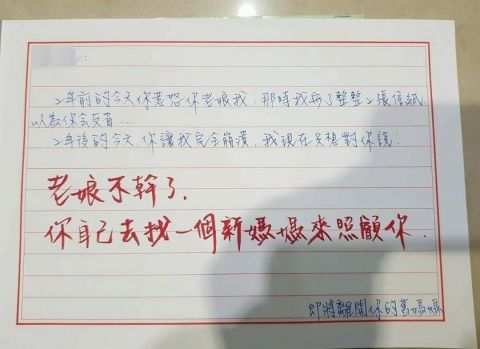 :
2年前的今天你惹怒你老娘我.那時我寫了整整2張信紙
以為你會反省...
2年後的今天你讓我完全崩潰.我現在只想對你說:
老娘不幹了.
你自己去找一個新媽媽來照顧你.
即將離開你的舊媽媽